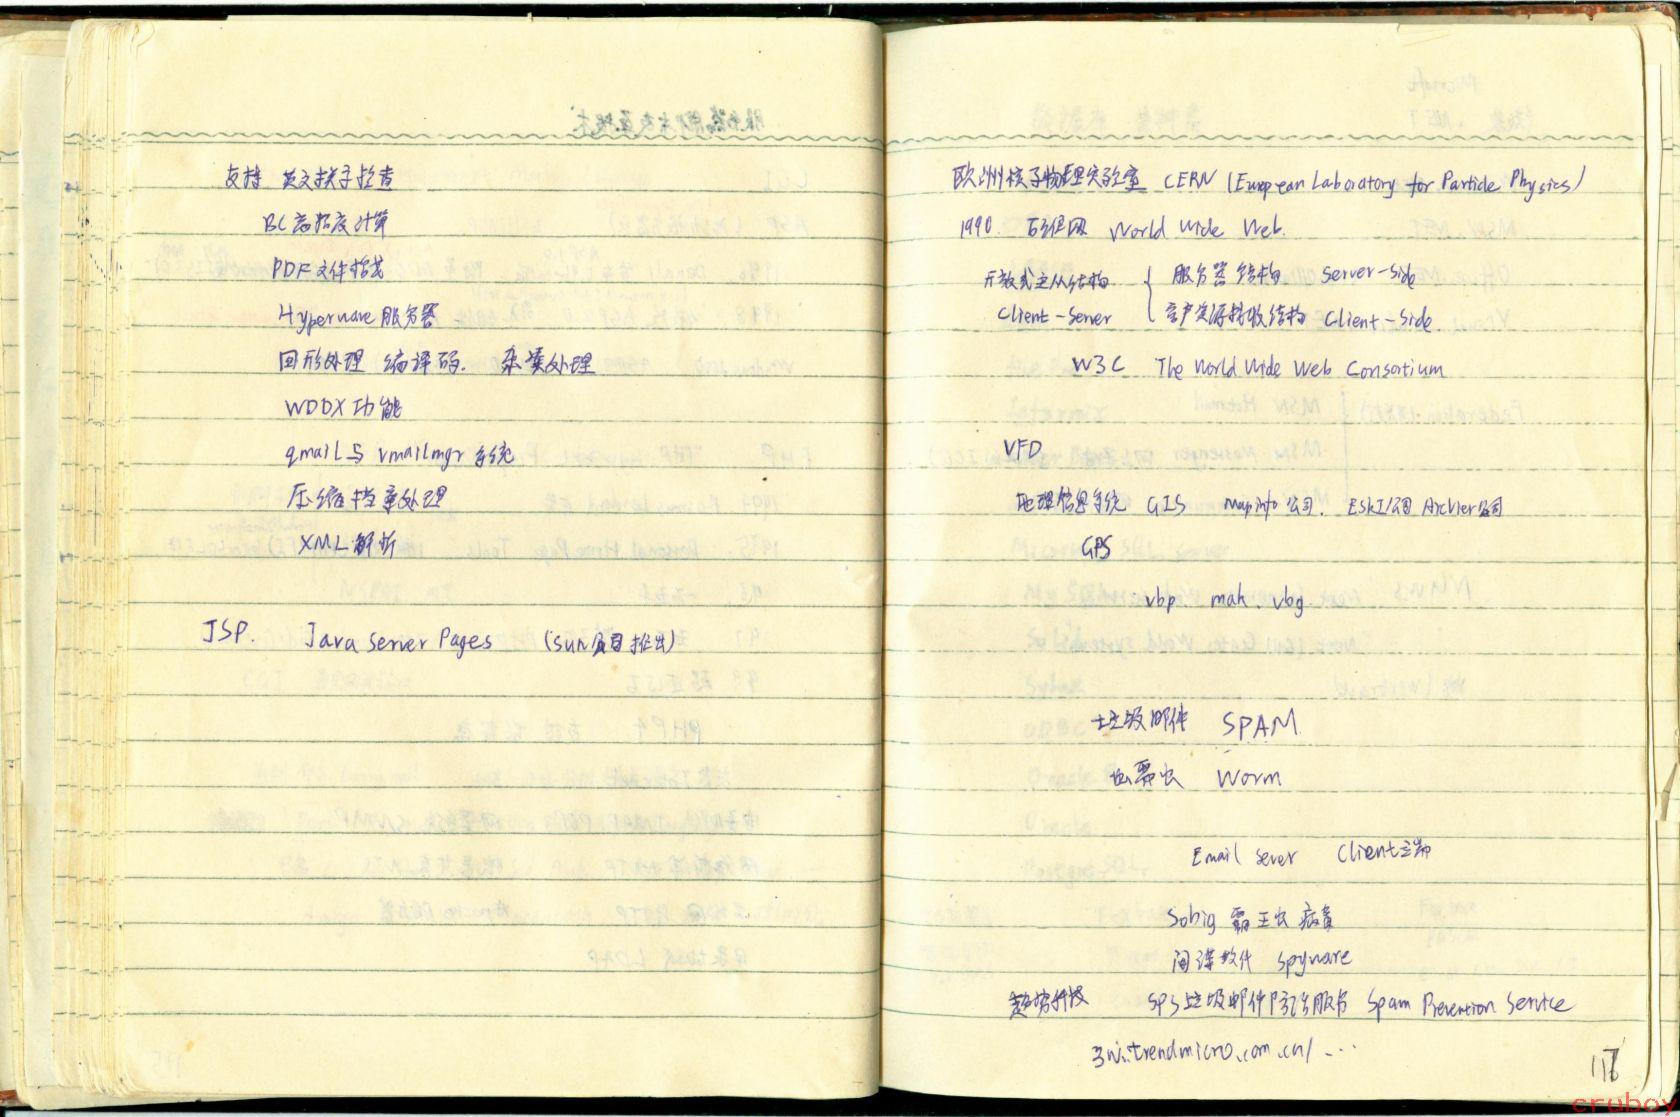 支持 英文拼字检查
BC高精度计算
PDF文件格式
Hyperwave服务器
图形处理 编译码. 杂凑处理
WDDX功能
qmail与vmailmgr系统
压缩档案处理
XML解析
JSP. Java Server Pages (sun公司推出)
欧洲核子物理实验室 CERN (European Laboratory for Particle Physics)
1990. 万维网 World Wide Web.
开放式主从结构 { 服务器结构 Server-Side
Client-Server 客户资源接收结构 Client-Side.
W3C The World Wide Web Consortium
VFD
地理信息系统 GIS Mapinfo公司. 公司
GPS
vbp. mak. vbg.
垃圾邮件 SPAM
蠕虫 Worm
Email Sever Client端
Sobig 霸王虫 病毒
间谍软件 Spyware
趋势科技 SPS垃圾邮件防治服务 Spam Prevention Service
3w.trendmicro.com.cn/...
117
cruboy